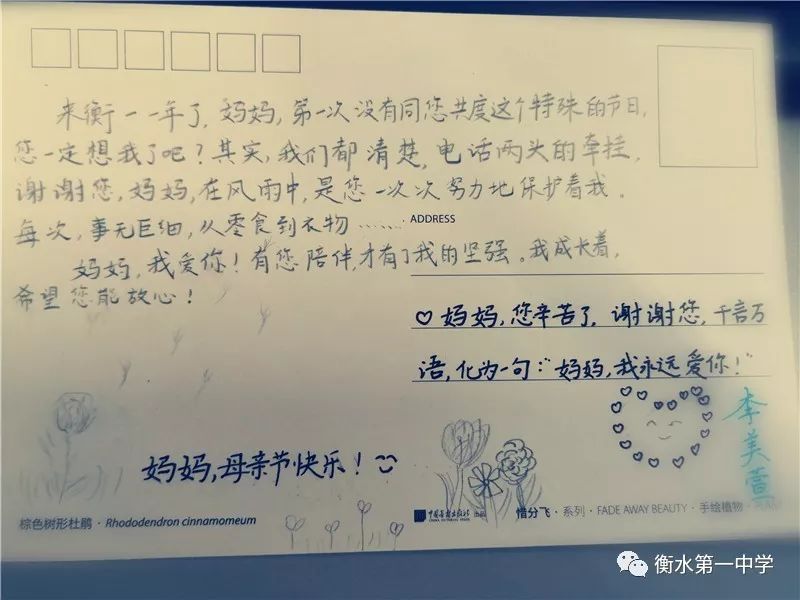 来衡一一年了，妈妈，第一次没有同您共度这个特殊的节日，
您一定想我了吧？其实，我们都清楚，电话两头的牵挂，
谢谢您，妈妈，在风雨中，是您一次次努力地保护着我。
每次，事无巨细，从零食到衣物……
ADDRESS
妈妈，我爱你！有您陪伴，才有了我的坚强。我成长着，
希望您能放心！
♡妈妈，您辛苦了，谢谢您，千言万
语，化为一句：“妈妈，我永远爱你！”
李美萱
妈妈，母亲节快乐！
棕色树形杜鹃 · Rhododendron cinnamomeum
惜分飞 · 系列 · FADE AWAY BEAUTY · 手绘植物 ·
衡水第一中学